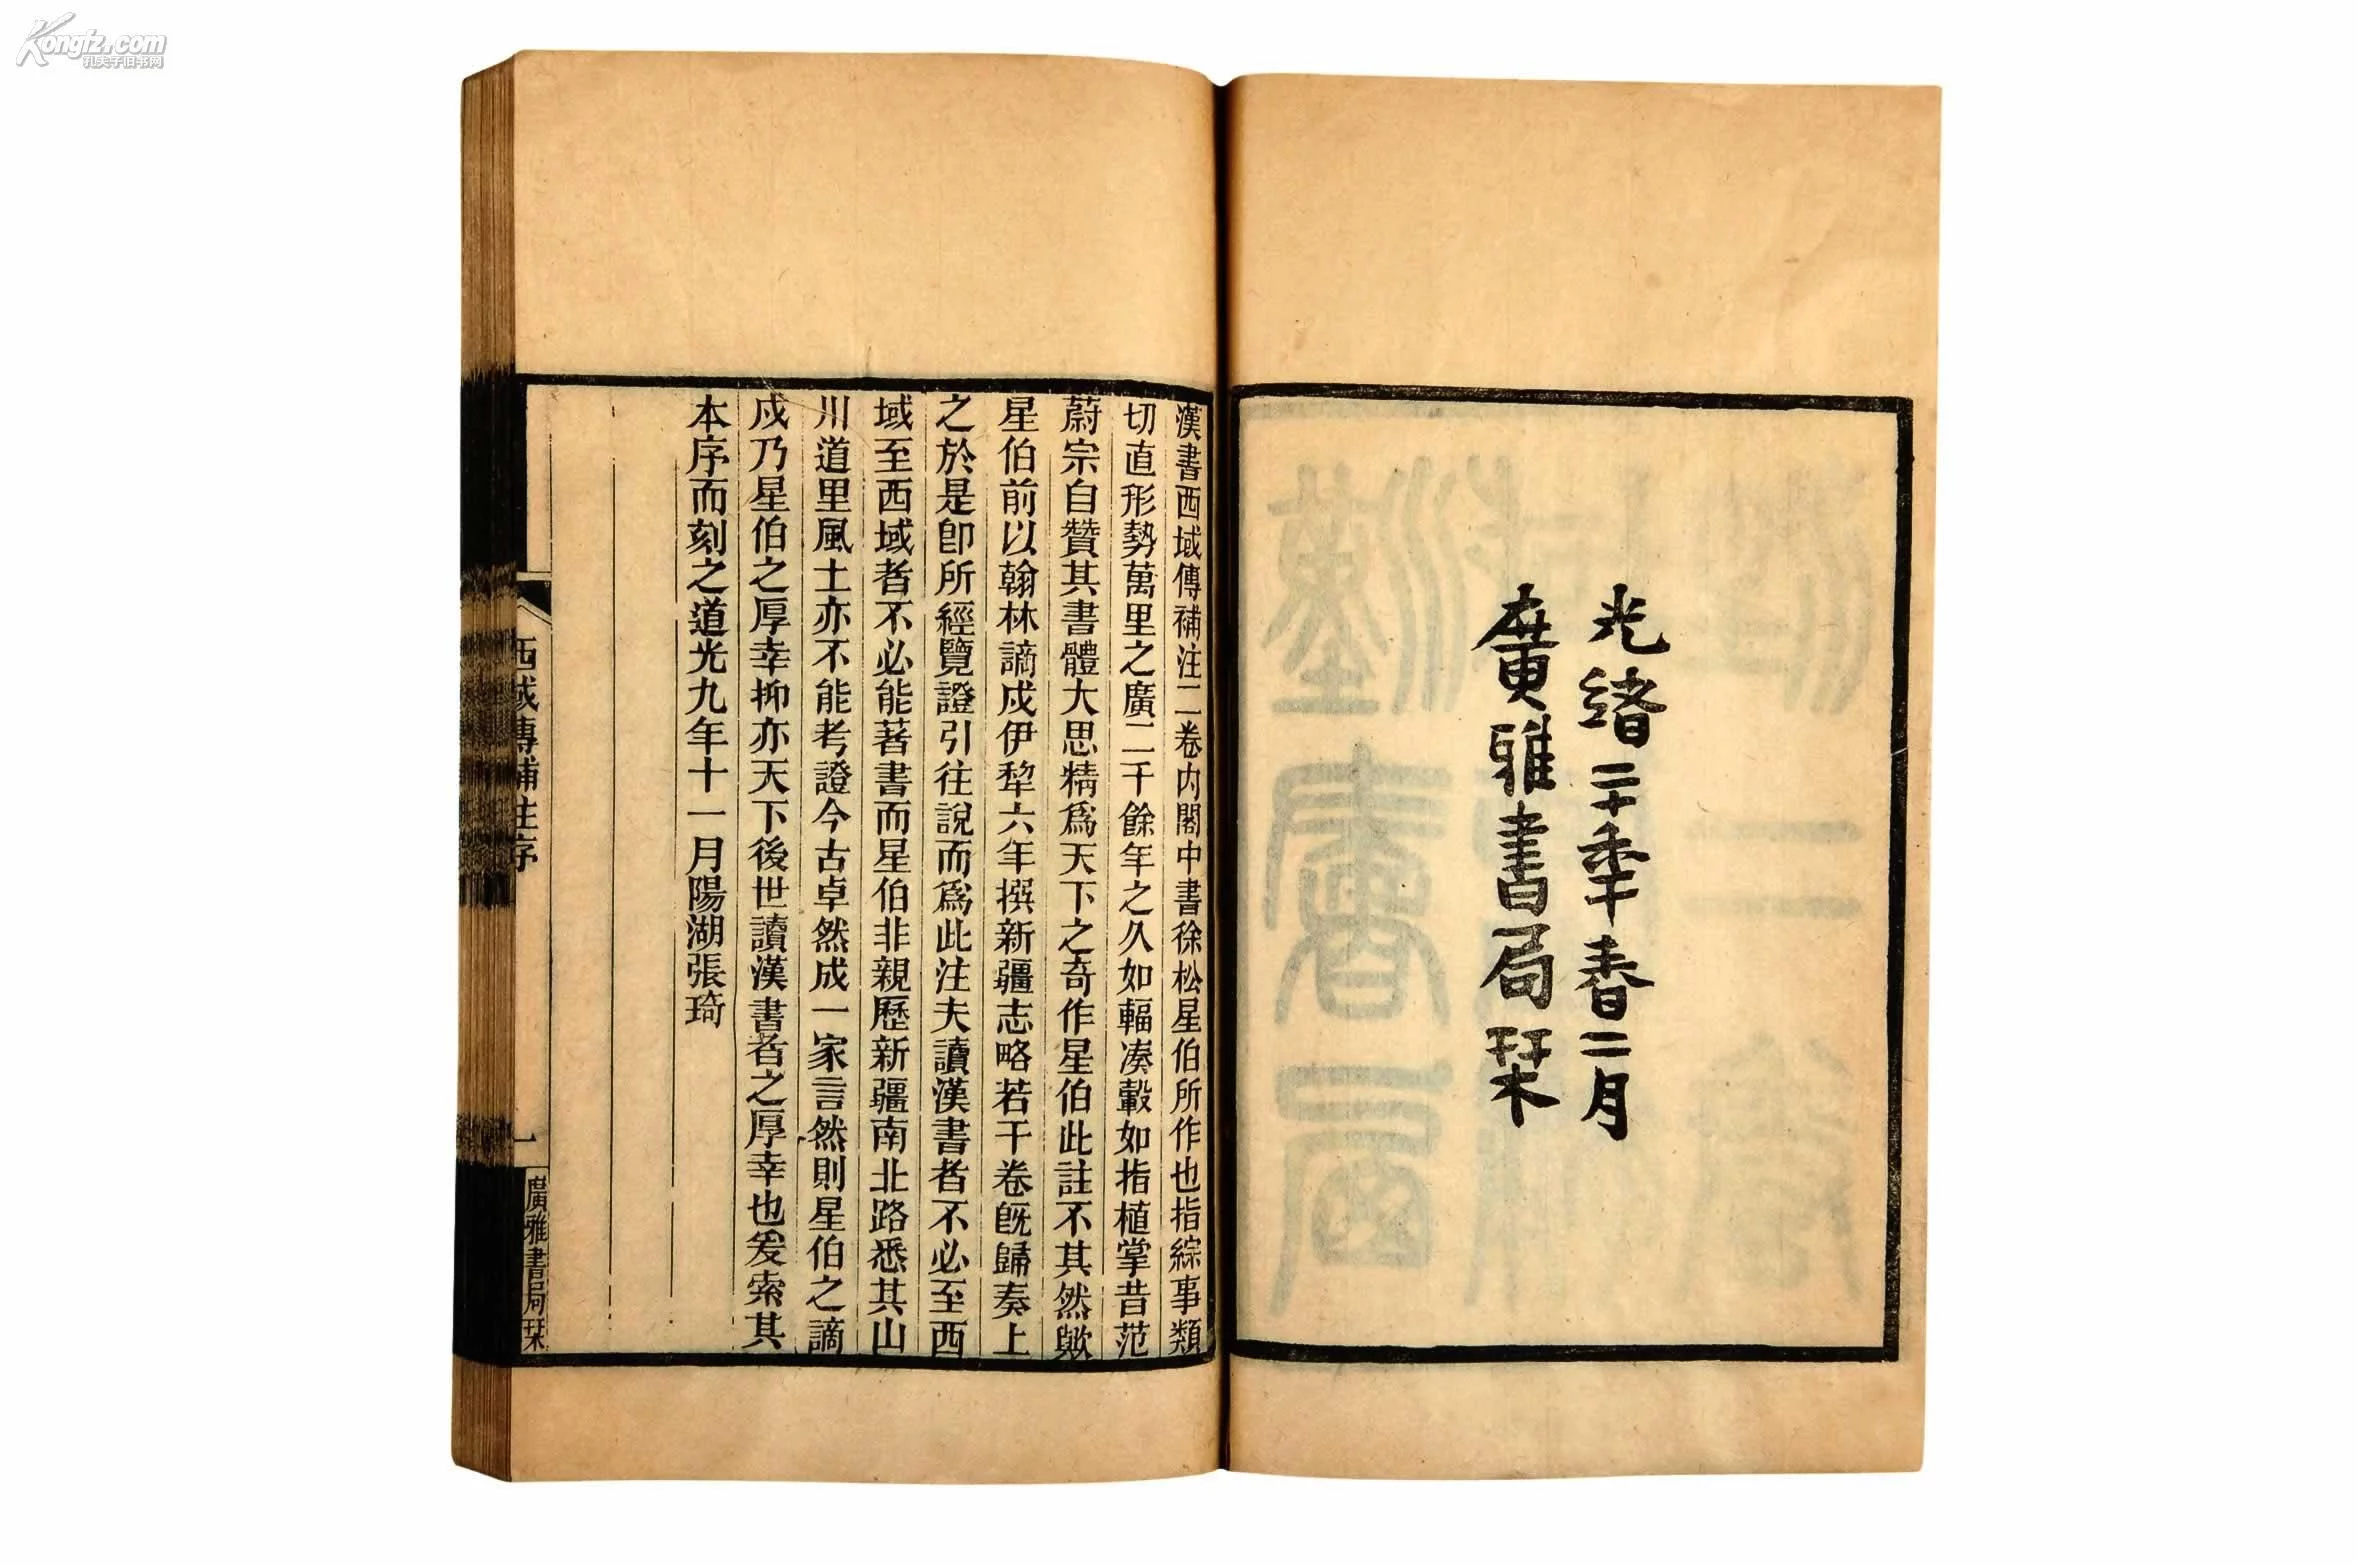 Kongfz.com
孔夫子旧书网
光緒二十季春二月
廣雅書局栞
漢書西域傳補注二卷內閣中書徐松星伯所作也指綜事類
切直形勢萬里之廣二千餘年之久如輻湊轂如指植掌昔范
蔚宗自贊其書體大思精爲天下之奇作星伯此註不其然歟
星伯前以翰林謫戍伊犂六年撰新疆志略若干卷旣歸奏上
之於是卽所經覽證引往說而爲此注夫讀漢書者不必至西
域至西域者不必能著書而星伯非親歷新疆南北路悉其山
川道里風土亦不能考證今古卓然成一家言然則星伯之謫
戍乃星伯之厚幸抑亦天下後世讀漢書者之厚幸也爰索其
本序而刻之道光九年十一月陽湖張琦
西域傳補注序
一
廣雅書局栞